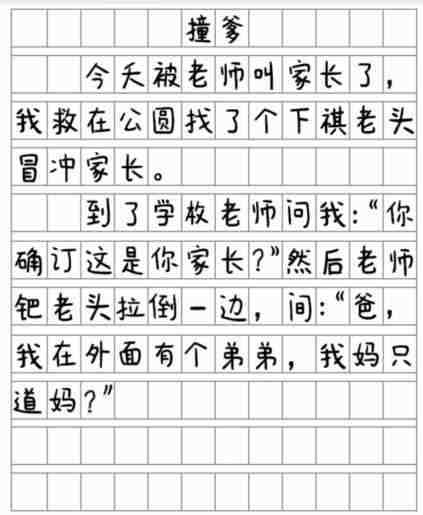 撞爹
今天被老师叫家长了，
我救在公圆找了个下祺老头
冒冲家长。
到了学枚老师问我：“你
确订这是你家长？”然后老师
钯老头拉倒一边，间：“爸，
我在外面有个弟弟，我妈只
道妈？”